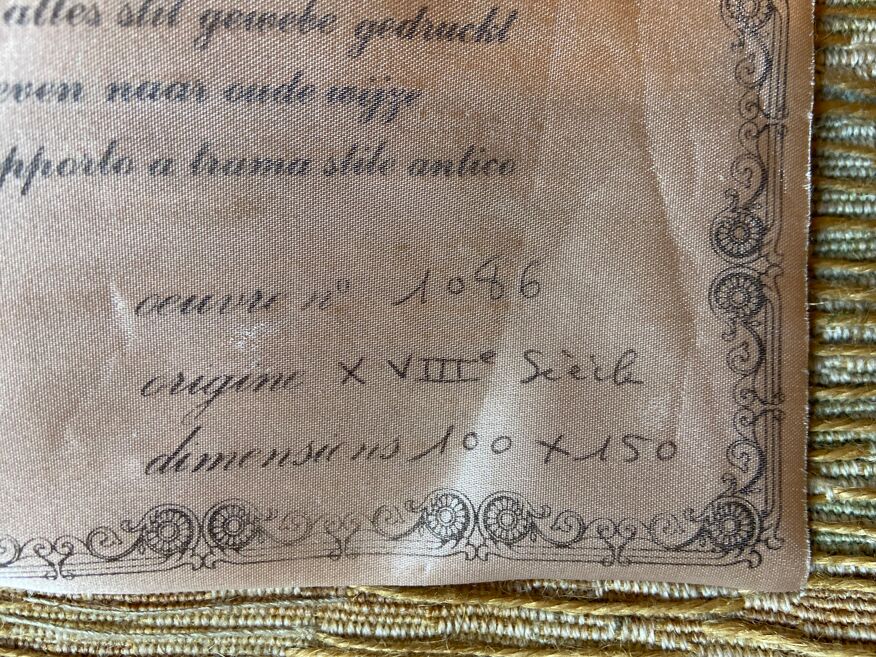 altes stil gewebe gedruckt
even naar oude wijze
pporto a trama stile antico
oeuvre n° 1086
origine XVIIIe Siècle
dimensions 100 x 150